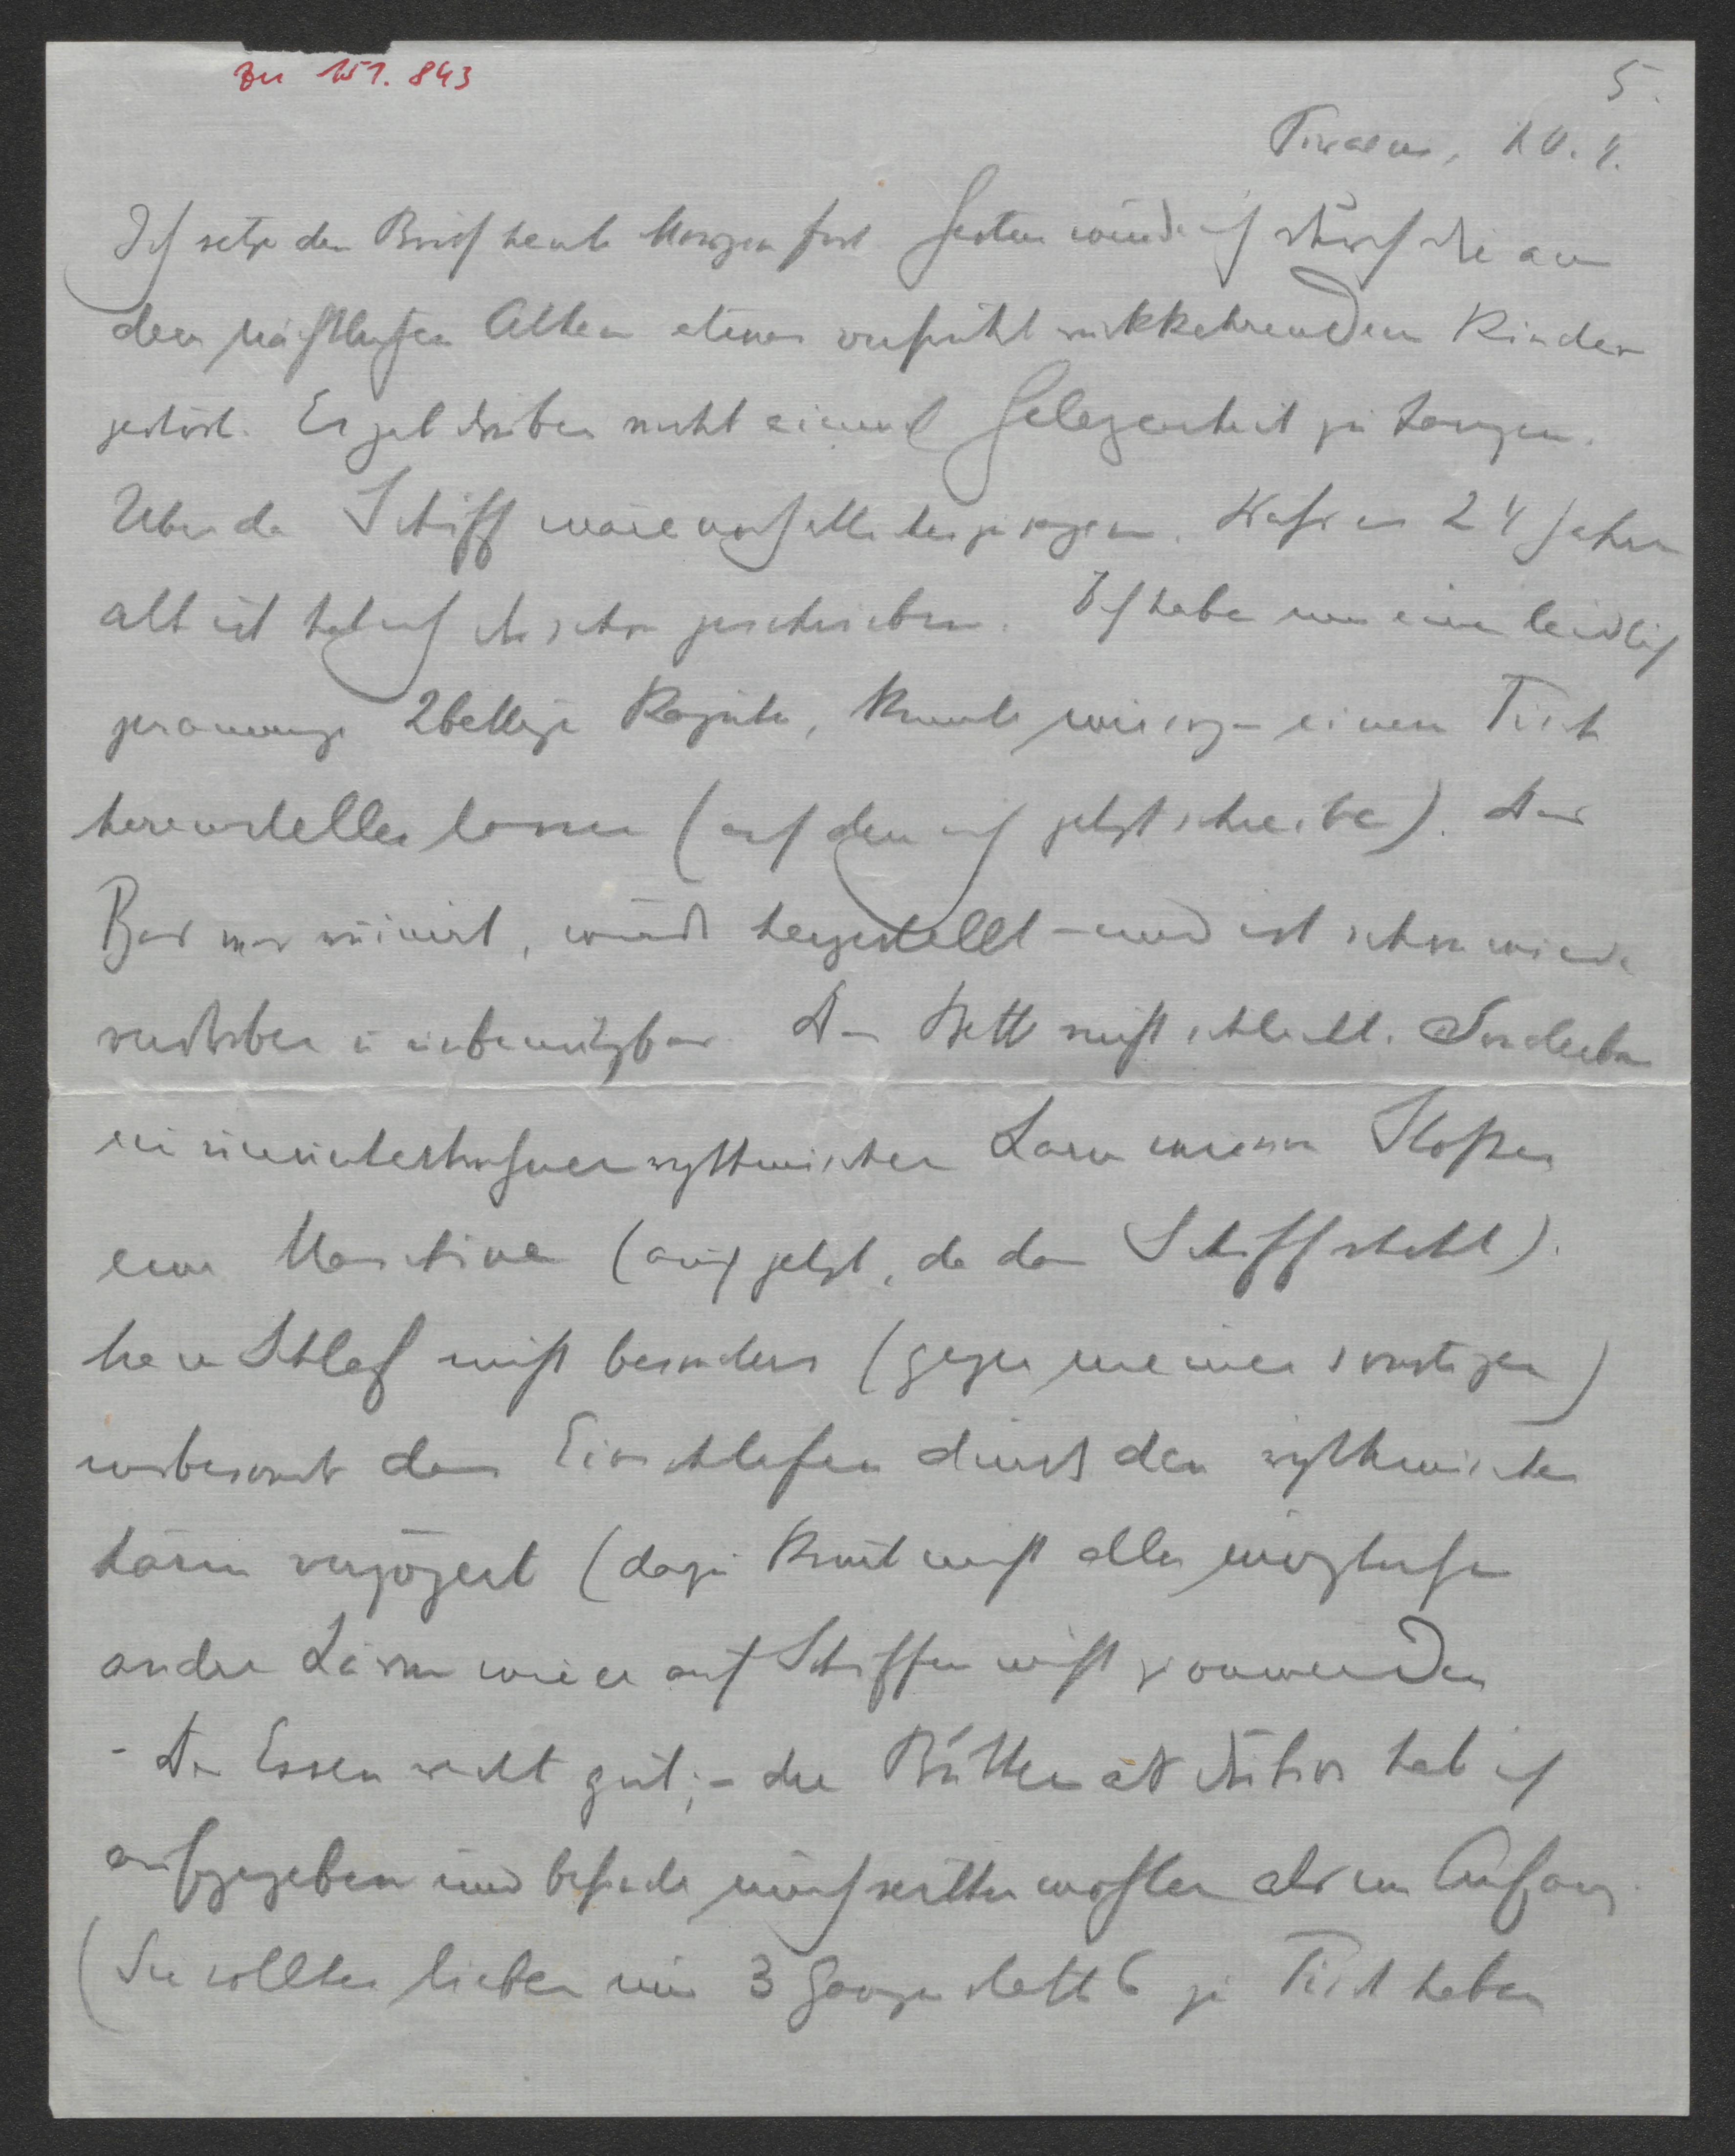 zu 151.843
5.
Piraeus, 10.4.
Ich setze den Brief heute Morgen fort. Gestern wurde ich durch die aus
dem nächtlichen Athen etwas verfrüht rückkehrenden Kinder
gestört. Es gab drüben nicht einmal Gelegenheit zu tanzen.
Über das Schiff wäre noch allerlei zu sagen. Dass es 24 Jahre
alt ist hab ich dir schon geschrieben. Ich habe nun eine leidlich
geräumige 2bettige Kajüte, konnte mir sogar einen Tisch
hereinstellen lassen (auf dem ich jetzt schreibe). Das
Bad war ruiniert, wurde hergestellt – und ist schon wieder
verdorben u unbenützbar. Das Bett nicht schlecht. Sonderbar
ein ununterbrochener rythmischer Lärm wie von Stößen
einer Maschine (auch jetzt, da das Schiff steht).
Mein Schlaf nicht besonders (gegen meinen sonstigen)
insbesondre das Einschlafen durch den rythmischen
Lärm verzögert (dazu kommt noch aller mögliche
andre Lärm wie er auf Schiffen nicht zu vermeiden
– Das Essen recht gut; – die hab ich
aufgegeben und befinde mich seither wohler als im Anfang.
(Sie sollten lieber nur 3 Gänge statt 6 zu Tisch haben